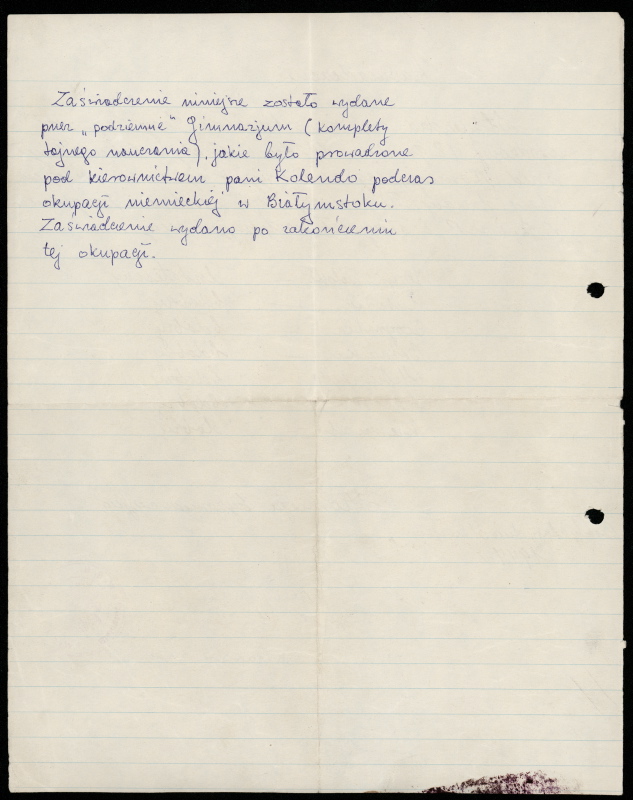 Zaświadczenie niniejsze zostało wydane
przez „podziemne" Gimnazjum (komplety
tajnego nauczania), jakie było prowadzone
pod kierownictwem pani Kolendo podczas
okupacji niemieckiej w Białymstoku.
Zaświadczenie wydano po zakończeniu
tej okupacji.